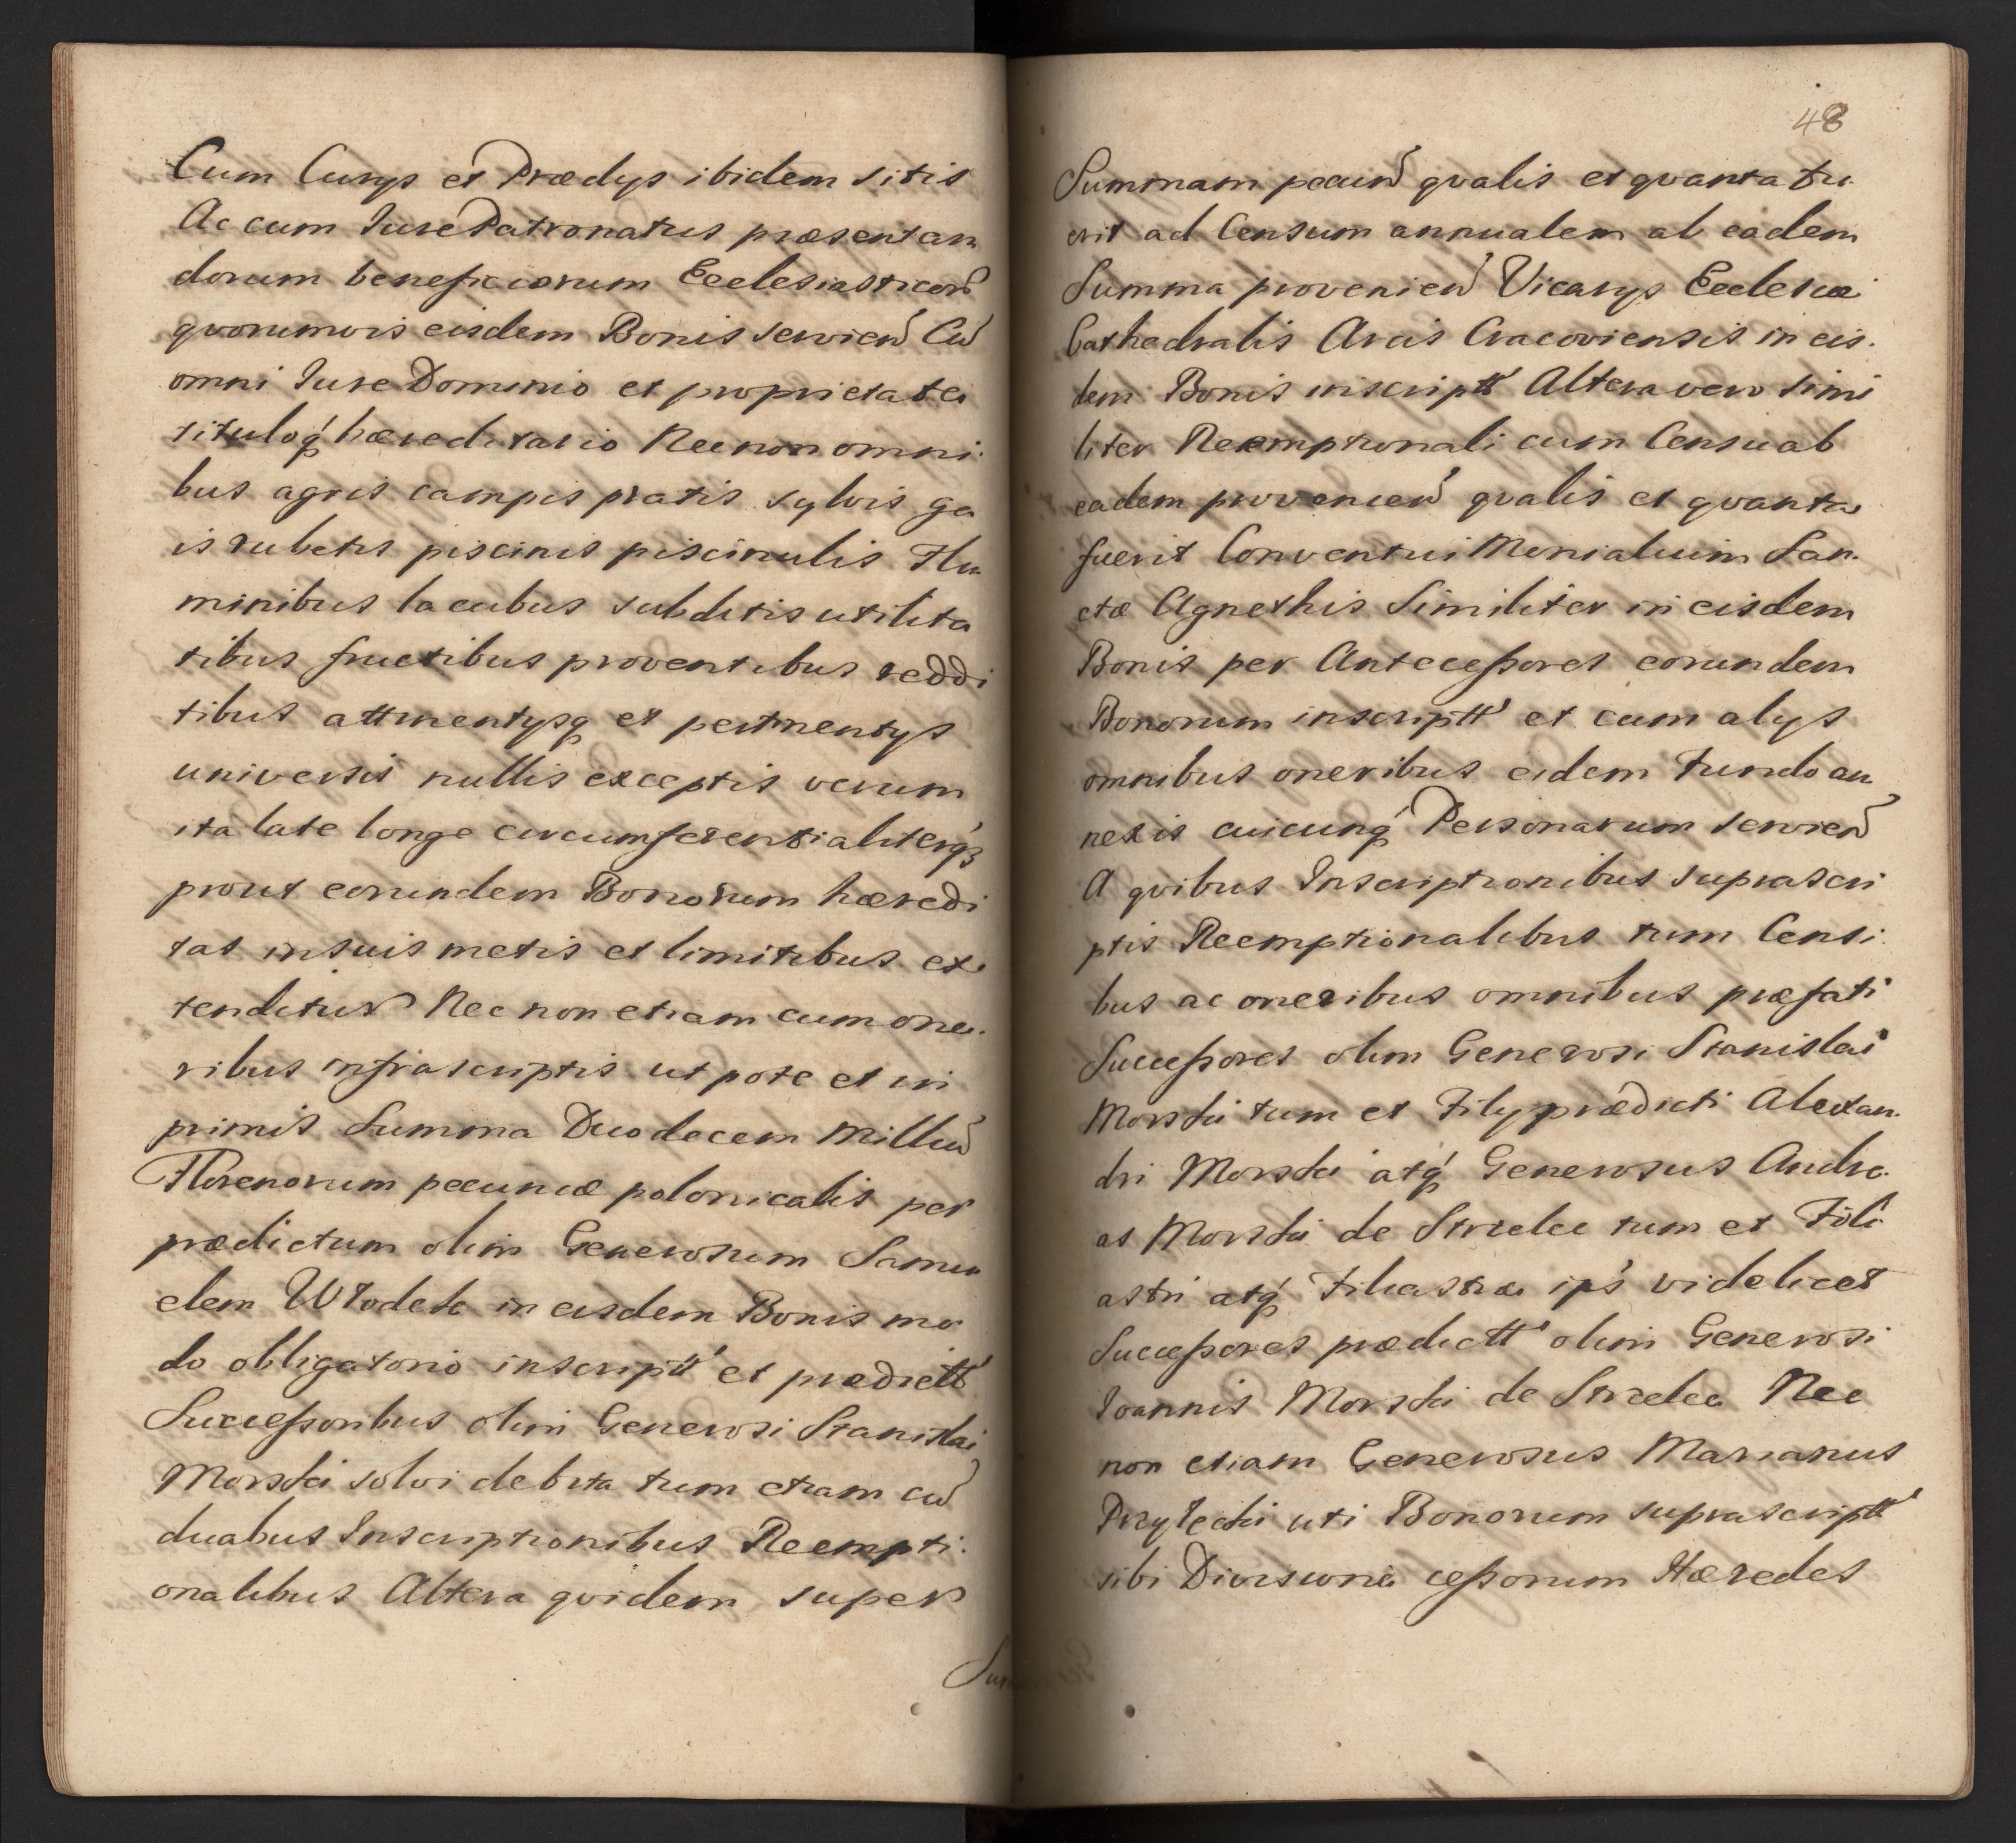 Cum Curys et Prædys ibidem sitis
Ac cum Iure Patronatus præsentan
dorum beneficiorum Ecclesiasticorũ
qvorumvis eisdem Bonis servieñ Cũ
omni Iure Dominio et proprietate
tituloq́ hæreditario Necnon omni
bus agris campis pratis sylvis ga
is rubetis piscinis piscinulis Flu
minibus lacubus subditis utilita
tibus fructibus proventibus reddi
tibus attinentysq et pertinentys
universis nullis exceptis verum
ita late longe circumferentialiterq́3
prout eorundem Bonorum hæredi
tas in suis metis et limitibus ex
tenditur Nec non etiam cum one
ribus infrascriptis ut pote et in
primis Summa Duodecem Milliũ
Florenorum pecuniæ polonicalis per
prædictum olim Generosum Samu
elem Włodek in eisdem Bonis mo
do obligatorio inscriptt' et prædictt'
Successoribus olim Generosi Stanislai
Morski solvi debita tum etiam cũ
duabus Inscriptionibus Reempti
onalibus Altera qvidem super
Sum
48
Summam pecuñ qvalis et qvanta fu
erit ad Censum annualem ab eadem
Summa provenieñ Vicarys Ecclesiæ
Cathedralis Arcis Cracoviensis in eis
dem Bonis inscriptt' Altera vero simi
liter Reemptionali cum Censu ab
eadem provenieñ qvalis et qvanta
fuerit Conventui Monialium San
ctæ Agnethis Similiter in eisdem
Bonis per Antecessores eorundem
Bonorum inscriptt' et cum alys
omnibus oneribus eidem Fundo an
nexis cuicunq́ Personarum servieñ
A qvibus Inscriptionibus suprascri
ptis Reemptionalibus tum Censi
bus ac oneribus omnibus præfati
Successores olim Generosi Stanislai
Morski tum et Fily prædicti Alexan
dri Morski atq́ Generosus Andre
as Morski de Strzelce tum et Fili
astri atq́ Filiastræ ip's videlicet
Successores prædictt' olim Generosi
Ioannis Morski de Strzelce Nec
non etiam Generosus Marianus
Przyłecki uti Bonorum suprascriptt'
sibi Divisione cessorum Hæredes